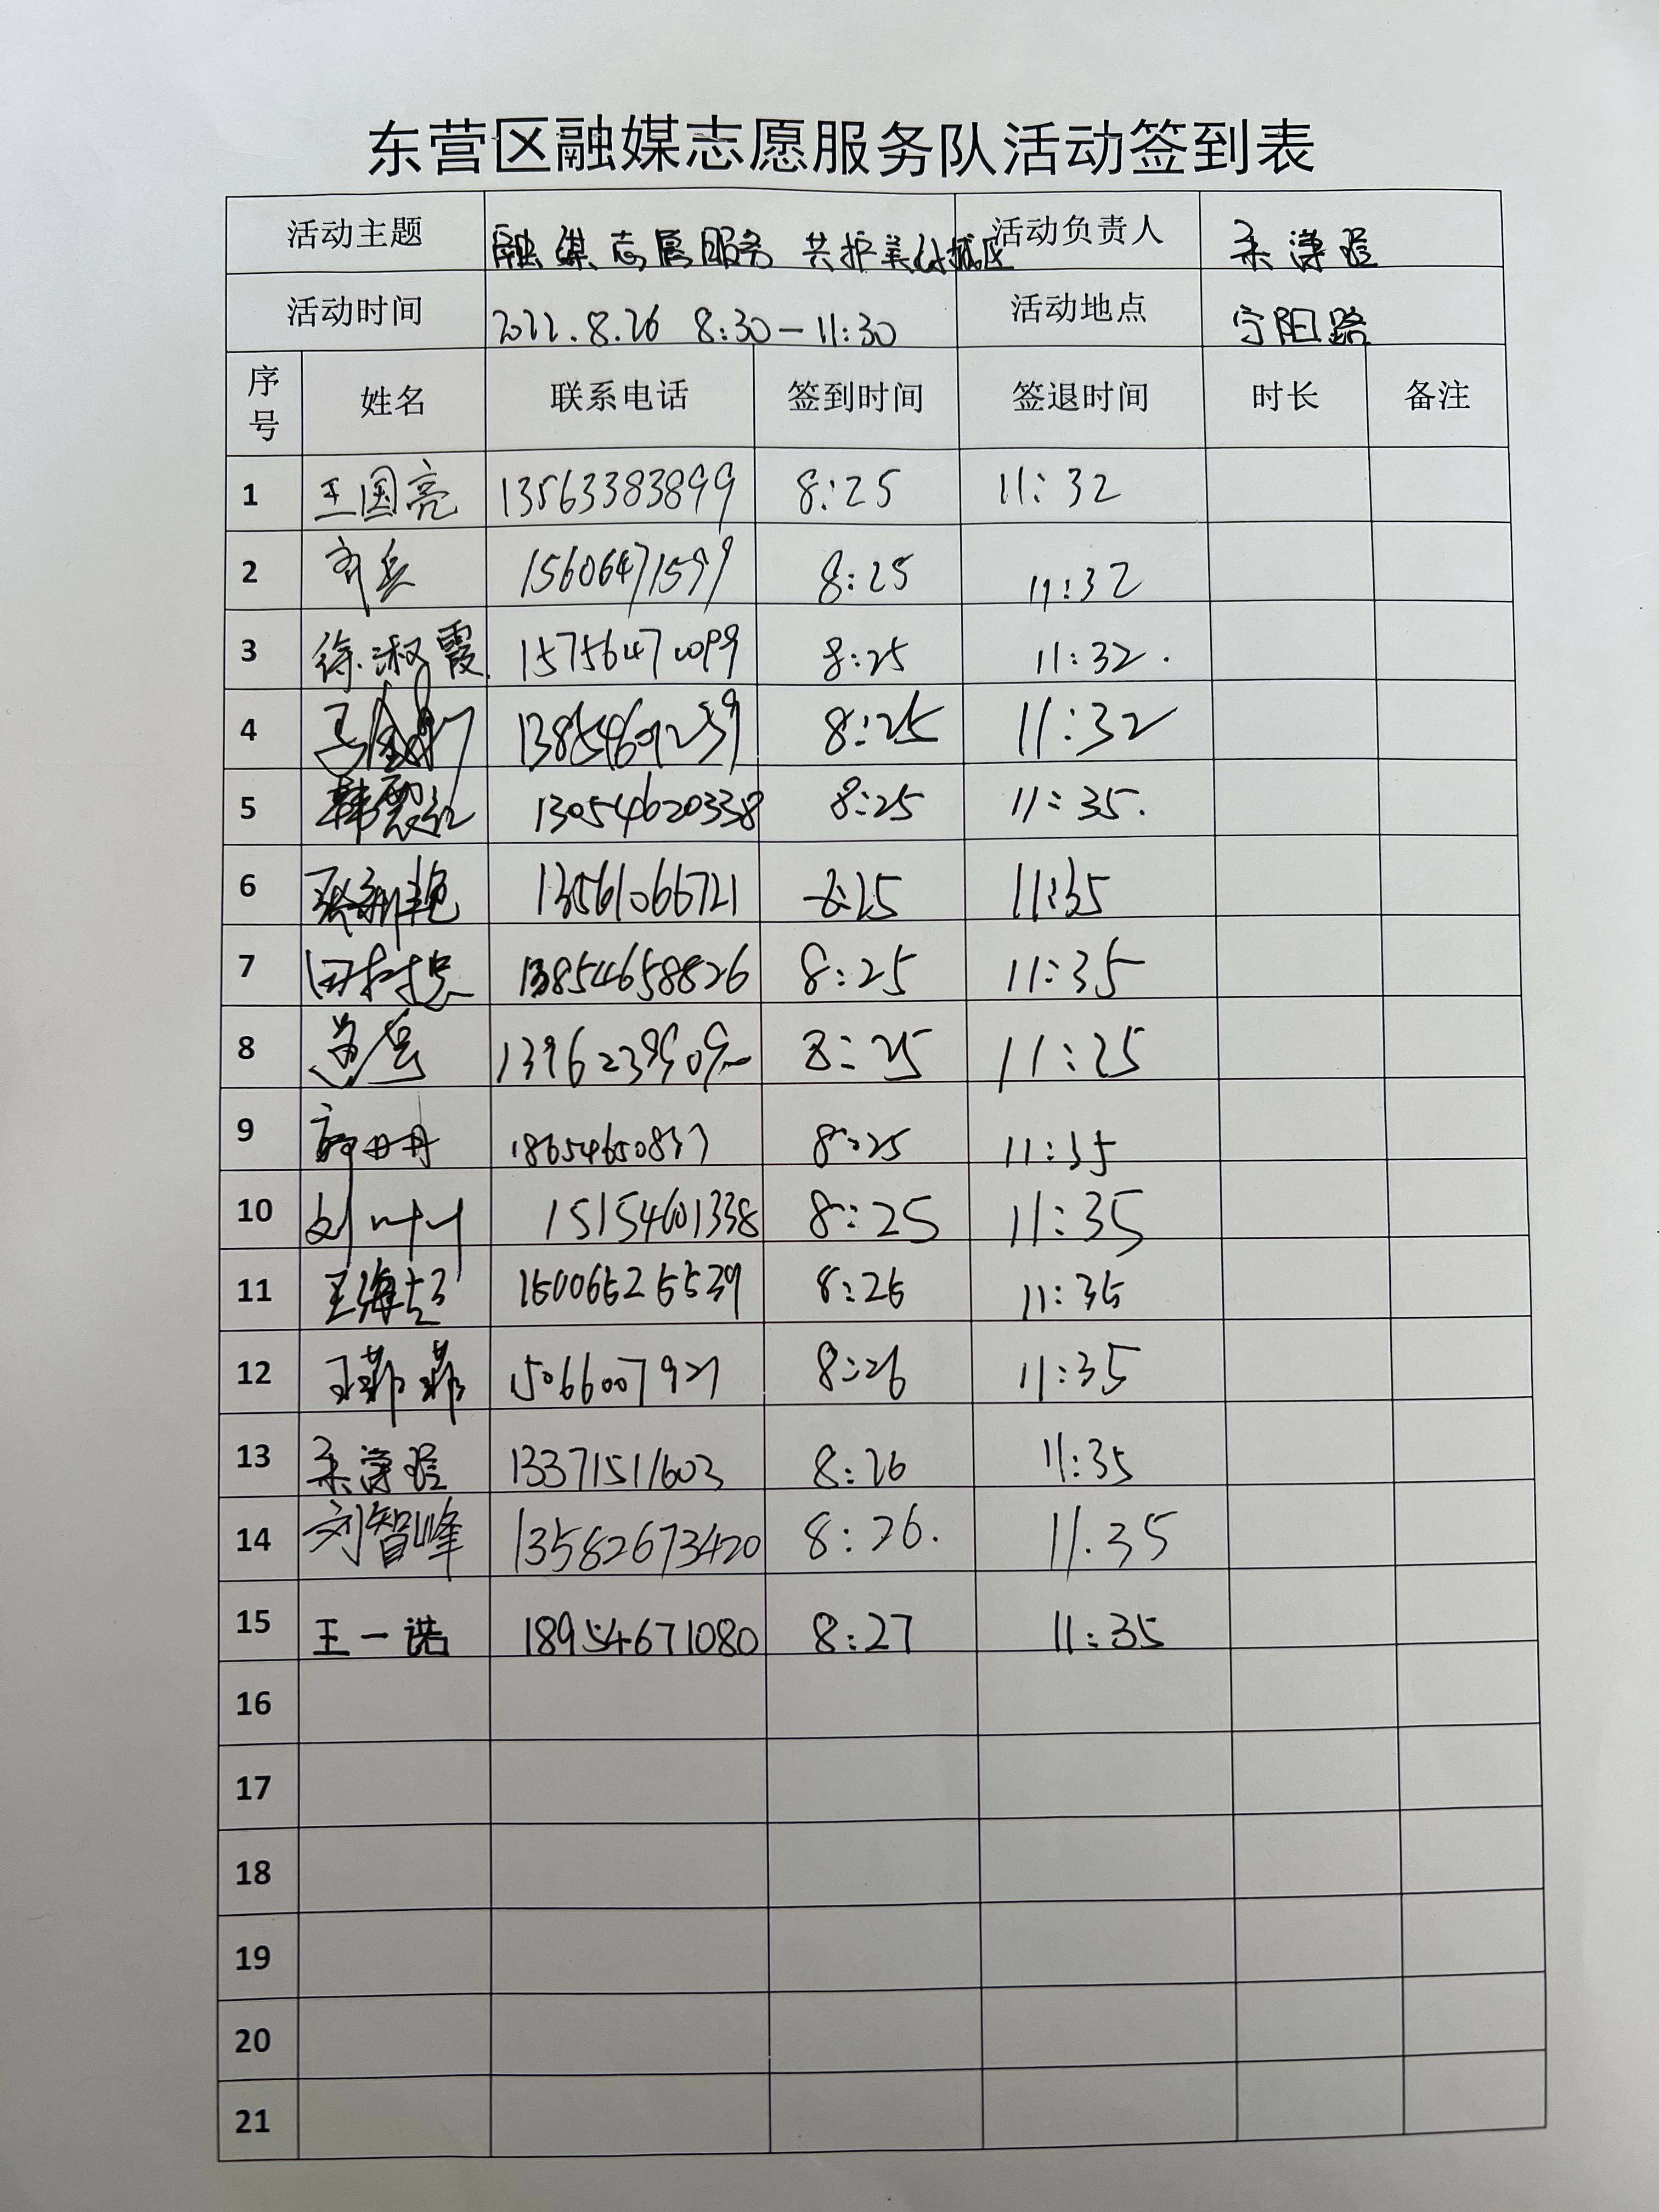 东营区融媒志愿服务队活动签到表
活动主题 融媒志愿服务 共护美丽城区 活动负责人
活动时间 2022.8.26 8:30-11:30 活动地点 宁阳路
序号 姓名 联系电话 签到时间 签退时间 时长 备注
1 王国亮 13563383899 8:25 11:32
2 15606471599 8:25 11:32
3 徐淑霞 15756471099 8:25 11:32.
4 8:25 11:32
5 13054620338 8:25 11:35.
6 13561066721 8:25 11:35
7 13854658826 8:25 11:35
8 8:25 11:25
9 8:25 11:35
10 刘叶叶 15154601338 8:25 11:35
11 15006525539 8:26 11:35
12 王菲菲 8:26 11:35
13 13371511603 8:26 11:35
14 刘智峰 13582673420 8:26. 11.35
15 王一诺 18954671080 8:27 11:35
16
17
18
19
20
21